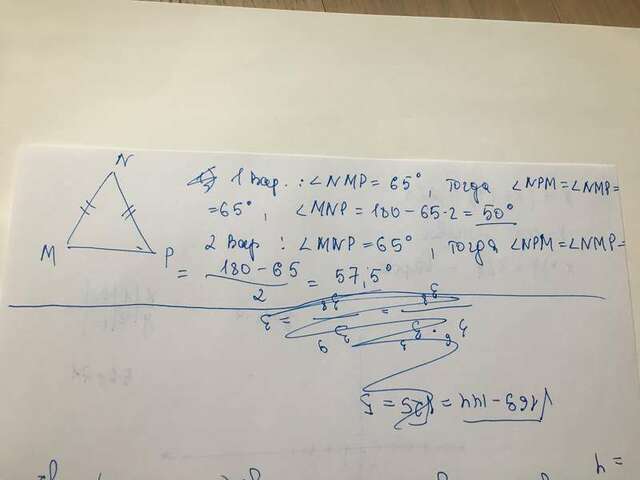 N
M
P
1 Вар. : ∠NMP = 65°, тогда ∠NPM = ∠NMP =
= 65°, ∠MNP = 180 – 65·2 = 50°
2 Вар : ∠MNP = 65°, тогда ∠NPM = ∠NMP =
= (180 – 65)/2 = 57,5°
√169-144 = √25 = 5
= 4